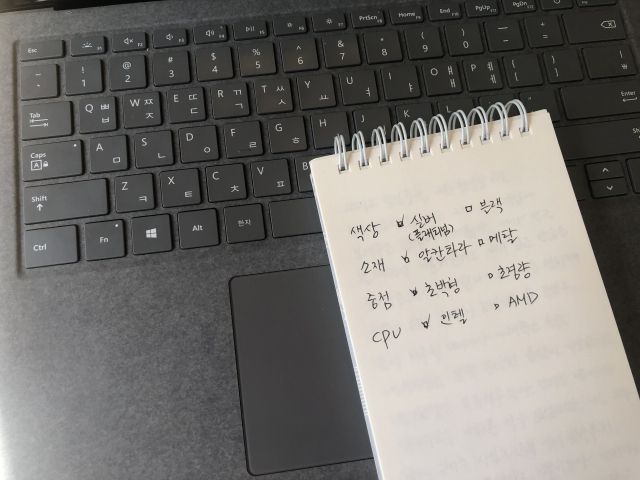 Esc F1 F2 F3 F4 F5 F6 F7 F8 PrtScn F9 Home F10 End F11 PgUp F12 PgDn
~ ` ! 1 @ 2 # 3 $ 4 % 5 ^ 6 & 7 * 8 ( 9 ) 0 _ - + =
Tab Q ㅃ ㅂ W ㅉ ㅈ E ㄸ ㄷ R ㄲ ㄱ T ㅆ ㅅ Y ㅛ U ㅕ I ㅑ O ㅒ ㅐ P ㅖ ㅔ { [ } ] | ₩
Caps A ㅁ S ㄴ D ㅇ F ㄹ G ㅎ H Enter
Shift Z ㅋ X ㅌ C ㅊ V ㅍ B Shift
Ctrl Fn Alt 한자
색상 실버 블랙
(플래티넘)
소재 알칸타라 메탈
중점 초박형 초경량
CPU 인텔 AMD